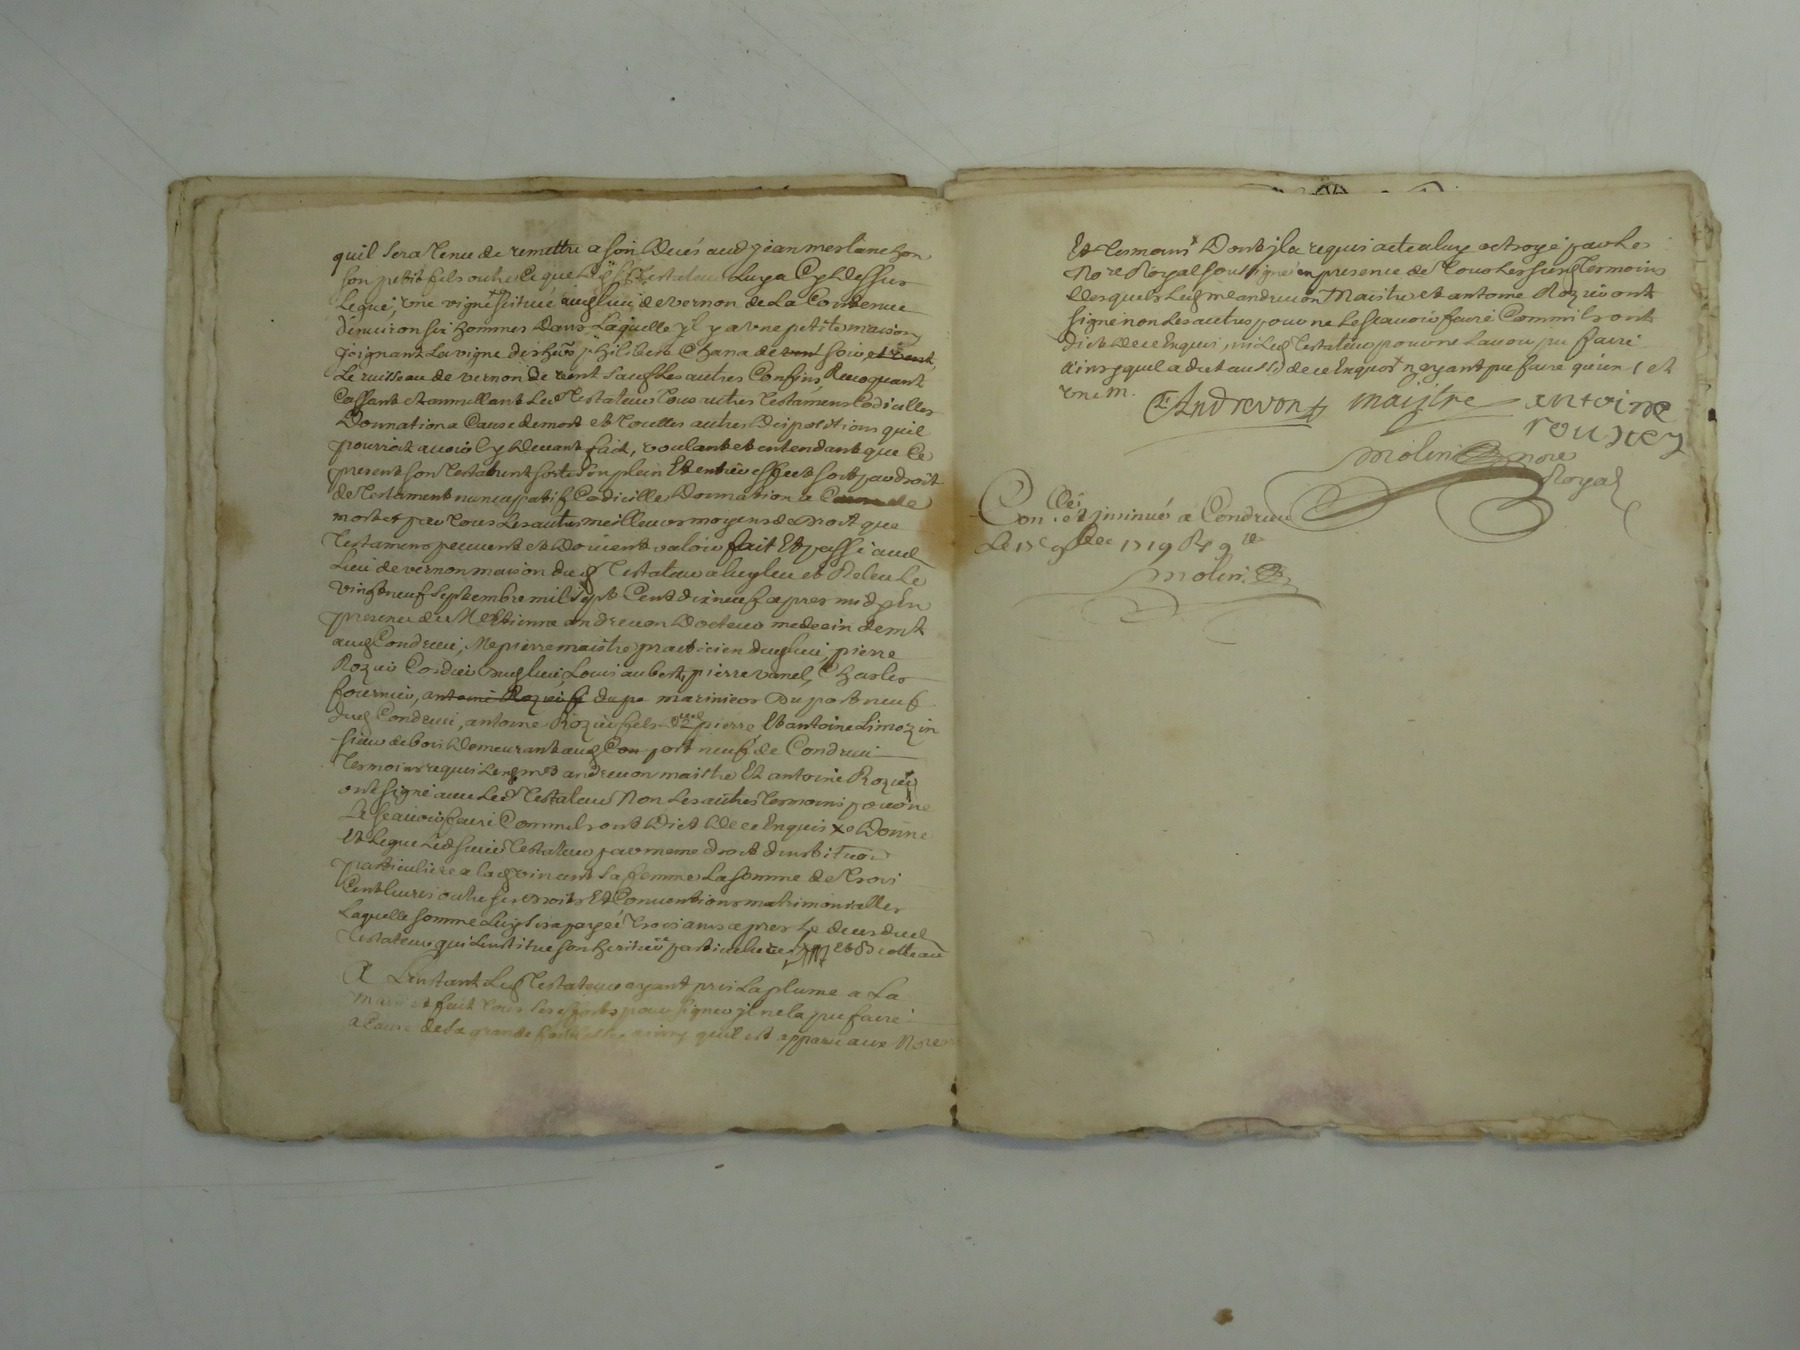 quil sera tenu de remettre a son deces aud jean merlanchon
son petit fils outre ce que led sr testateur luy a cy dessus
legué, une vigne scituée aud lieu de vernon de la Contenue
denviron six hommes dans laquelle yl y a une petite maison
joignant la vigne des hers philibert Chana de vent soir et vent
le ruisseau de vernon de vent sauf les autres Confins, Revoquant
Cassant et annullant led testateur tous autres testamens Codicilles
Donnation a Cause de mort et toutes autres dispositions quil
pourroit avoir cy devant fait, voulant et entendant que Ce
present son testament sorte son plein Et entier effect soit par droit
de testament nuncupatif, Codicille, Donnation a Cause de
mort et par tous les autres meilleurs moyens de droit que
testamens peuvent et doivent valoir fait Et passé aud
lieu de vernon maison dud testateur a luy leu et Releu le
vingt neuf septembre mil sept Cent dix neuf apres midy En
presence de Me Etienne andrevon docteur medecin demt
aud Condrieu, Me pierre maistre praticien dud lieu, pierre
Rozier Cordier dud lieu, Louis aubert, pierre vanel, Charles
fournier, antoine Rozier f du po mariniers du port neuf
dud Condrieu, antoine Rozier fils dud pierre Et antoine Limozin
sieur de bois demeurant aud Con port neuf de Condrieu
temoins requis lesd mes andrevon maistre Et antoine Rozier
ont signé avec led testateur Non les autres temoins pour ne
le scavoir faire Comm'ils ont dict de ce Enquis x donne
Et legue led sieur testateur par meme droit d'institution
particuliere a lad vincent sa femme la somme de trois
Cent livres outre ses droits Et Conventions matrimonialles
laquelle somme luy sera payée trois ans apres le deces dud
testateur qui linstitue son heritiere particuliere
A Linstant led testateur ayant pris la plume a la
main et fait tous ses efforts pour signer yl ne la pu faire
a Cause de sa grande foiblesse ainsy quil est apparu aux Nore
Et temoins Dont jl a requis acte a luy octroyé par les
Nore Royal soussigné en presence de tous lesd sieurs temoins
desquels lesd mes andrevon Maistre et antoine Rozier ont
signé non les autres pour ne le scavoir faire Comm'ils ont
dict de ce Enquis, ni led testateur pour ne lavoir pu faire
ainsy quil a dit aussi de ce Enquis nayant pu faire qu'un C et
une m.
E Andrevon maistre antoine
rousier
molin nore
Royal
Conllé et jnsinué a Condrieu
Le 9bre 1719 R
molin